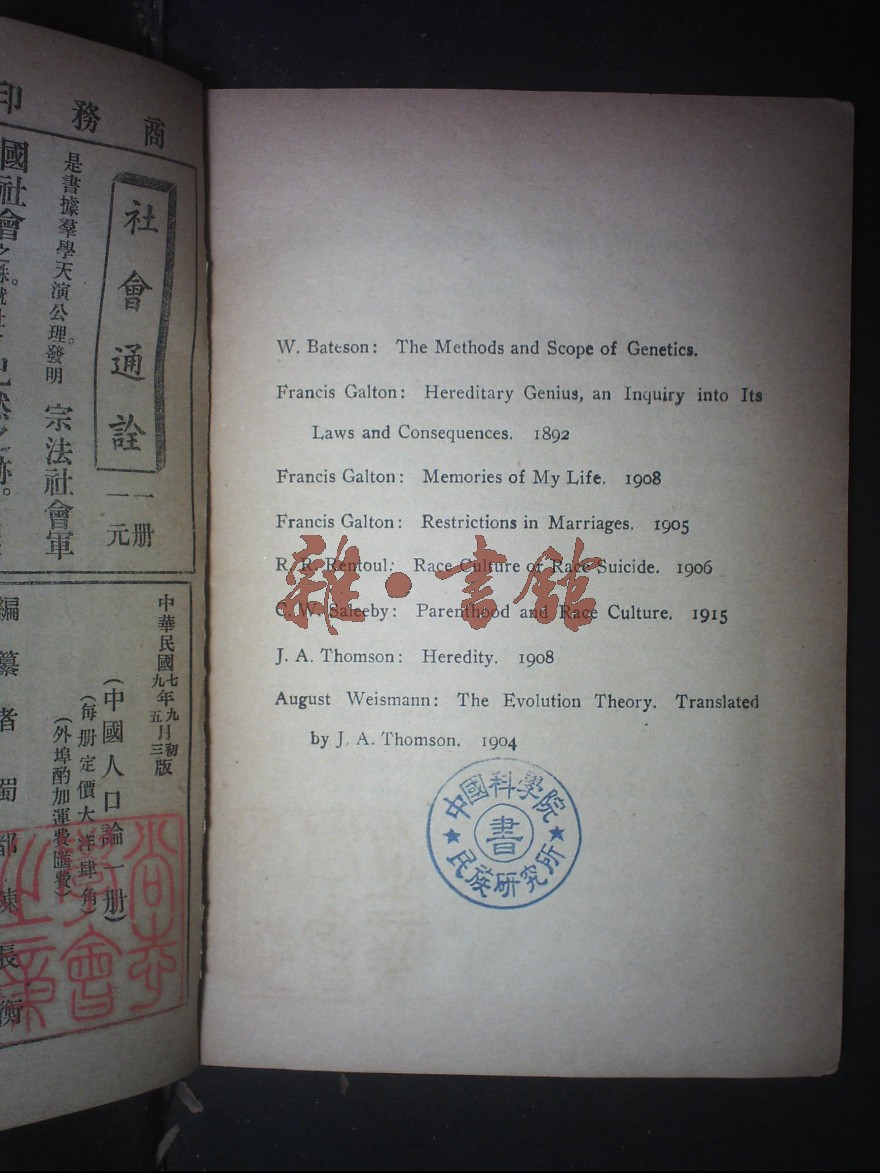 商務印
社會通詮
一册
一元
是書據羣學天演公理。發明
宗法社會軍
國社會之
已然之跡。
中華民國七年九月初版
九年五月三版
(中國人口論一册)
(每册定價大洋肆角)
(外埠酌加運費匯費)
編纂者蜀都陳長衡
W. Bateson: The Methods and Scope of Genetics.
Francis Galton: Hereditary Genius, an Inquiry into Its
Laws and Consequences. 1892
Francis Galton: Memories of My Life. 1908
Francis Galton: Restrictions in Marriages. 1905
R. R. Rentoul: Race Culture or Race Suicide. 1906
C. W. Saleeby: Parenthood and Race Culture. 1915
J. A. Thomson: Heredity. 1908
August Weismann: The Evolution Theory. Translated
by J. A. Thomson. 1904
雜·書館
中國科學院
書
民族研究所